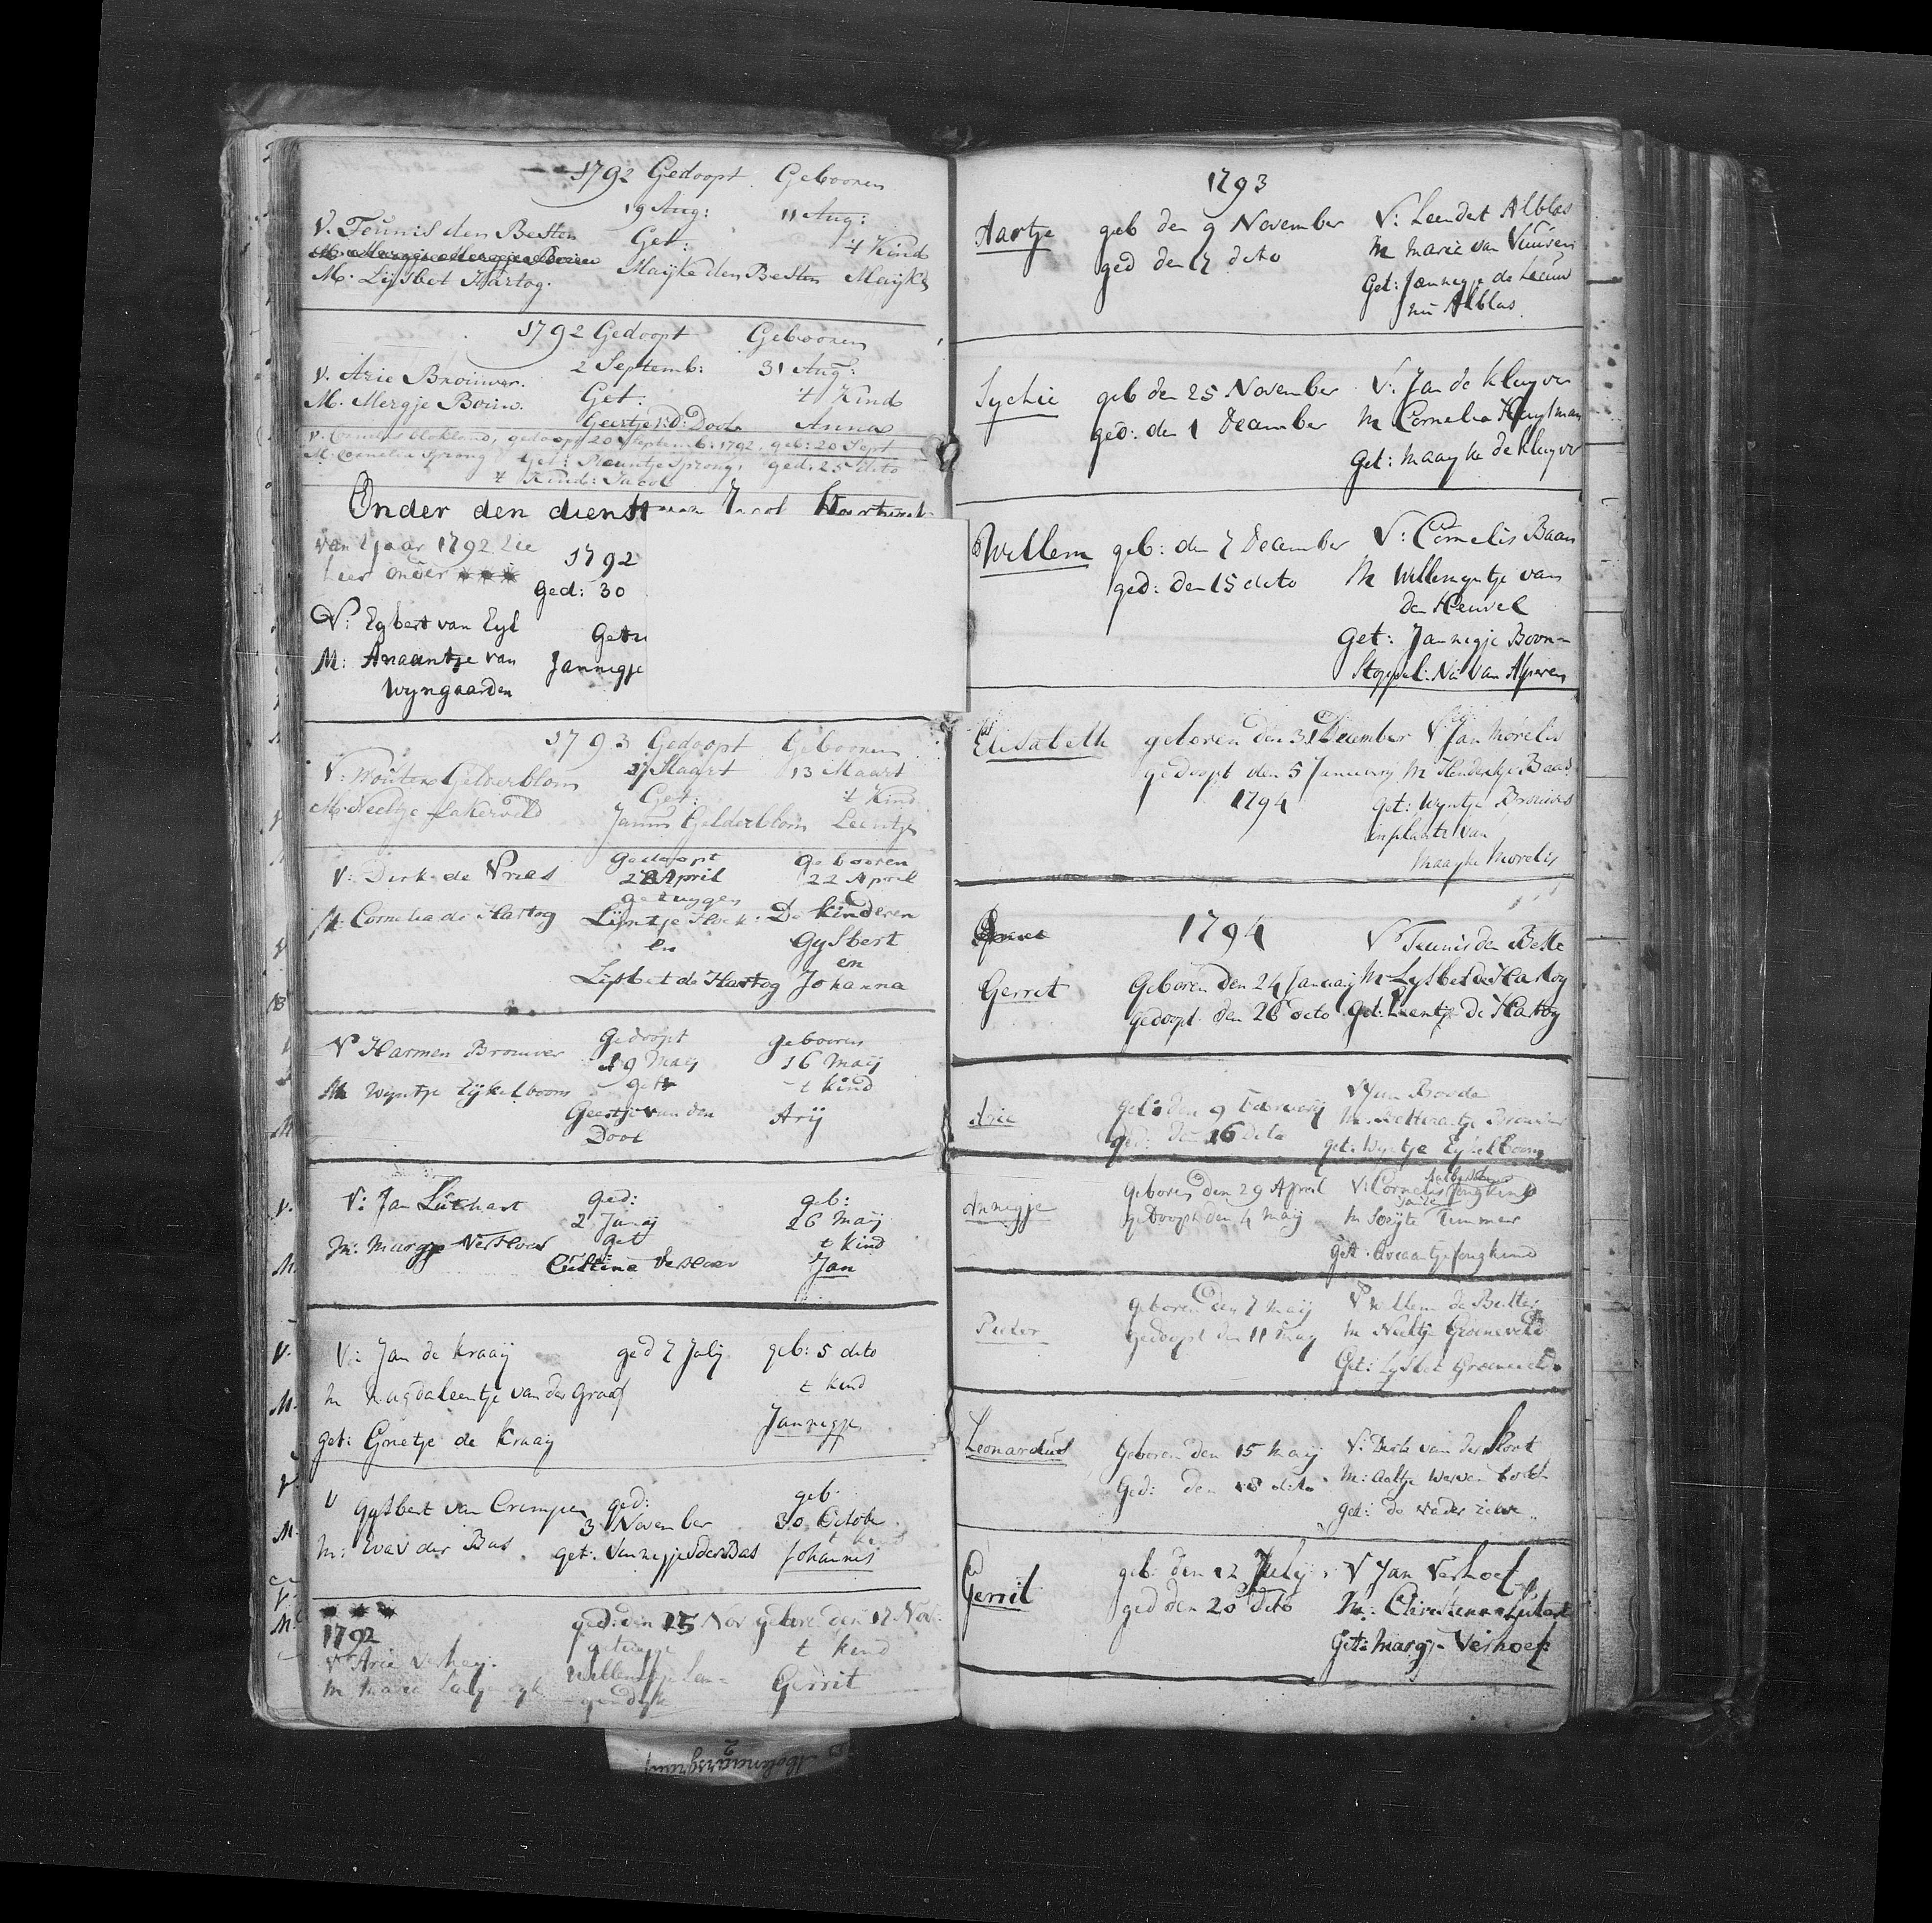 1792 Gedoopt Gebooren
19 Aug: 11 Aug:
V. Teunis den Besten Get: 't Kind
M. Lijsbet Hartog. Maijke den Besten Maijke
1792 Gedoopt Gebooren
2 Septemb: 31 Aug:
V. Arie Brouwer. Get: 't Kind
M. Mergje Bouw. Geertje v: d: Dool Anna
V. Cornelis blokland, gedoopt 20 Septemb: 1792, geb: 20 Sept
M. Cornelia Sprong, Get: Pleuntje Sprong, ged: 25 dito
't Kind: Jacob
Onder den dienst van Jacob
van 't jaar 1792 Zie 1792
hier onder ***
ged: 30
V: Egbert van Eyl
M: Anaantje van Jannegje
Wyngaarden
1793 Gedoopt Gebooren
27 Maart 13 Maart
V: Wouter Gelderblom Get: 't Kind
M: Neeltje Lakerveld Jannis Gelderblom Leentje
gedoopt gebooren
V: Dirk de Vries 28 April 22 April
getuygen
M: Cornelia de Hartog Lijntje Hoek: De kinderen
en Gijsbert
en
Lijsbet de Hartog Johanna
Gedoopt gebooren
V Harmen Brouwer 19 Maij 16 Maij
M Wijntje Eijkelboom get: t kind
Geertje van den Arij
Dool
V: Jan Luthart ged: geb:
2 Junij 26 Maij
M: Margje Verhoev get t kind
Jan
V: Jan de Kraaij ged 7 July geb: 5 dito
M Magdaleentje van der Graaf t kind
Jannegje
get: Grietje de Kraaij
V Gijsbert van Crimpen ged: geb:
3 November 30 October
t kind
M: Eva v der Bas get: Jannegje v der Bas Johannis
***
1792 ged: den 25 Nov gebore den 17 Nov:
V Arie Verheij. getuyge t kind
M Marie Langendyk Willemtje Lan= Gerrit
gendyk
1793
Aartje geb den 9 November V: Leendert Alblas
ged den 17 dito M Marie van Vuuren
Get: Jannegje de Leeuw
nu Alblas.
Sychie geb den 25 November V: Jan de Kluyver
ged: den 1 December M Cornelia Huylman
get: Maayke de Kluyver
Willem geb: den 7 December V: Cornelis Baan
ged: den 15 dito M Willemyntje van
den Heuvel
get: Jannegje Boon=
Stoppel: Nu van Alpheren
Elisabeth geboren den 31 December V: Jan Morelis
gedoopt den 5 January M Henderkje Baas
1794 get: Wyntje Brouwer
in plaats van
Maayke Morelis
1794 V Teunis den Beste
Gerret Geboren den 24 January M Lysbet de Hartog
gedoopt den 26 dito get: Leentje de Hartog
Arie geb: den 9 February V Jan Brorde
ged: den 16 dito
get: Wyntje Eykelboom
Annegje geboren den 29 April V: Cornelis Jongkind
gedoopt den 4 Maij M Seijte Timmer
get: Ariaantje Jongkind
Pieter geboren den 7 Maij V Willem de Butter
gedoopt den 11 May M Neeltje Groeneveld
Get: Lysbet Groeneveld
Leonardus geboren den 15 Maij V: Dirk van der Poort
Ged: den 18 dito M: Aaltje
get: de vader zelve
Gerrit geb: den 12 July V Jan Verhoef
ged den 20 dito M: Christena Luthart
Get: Margje Verhoef